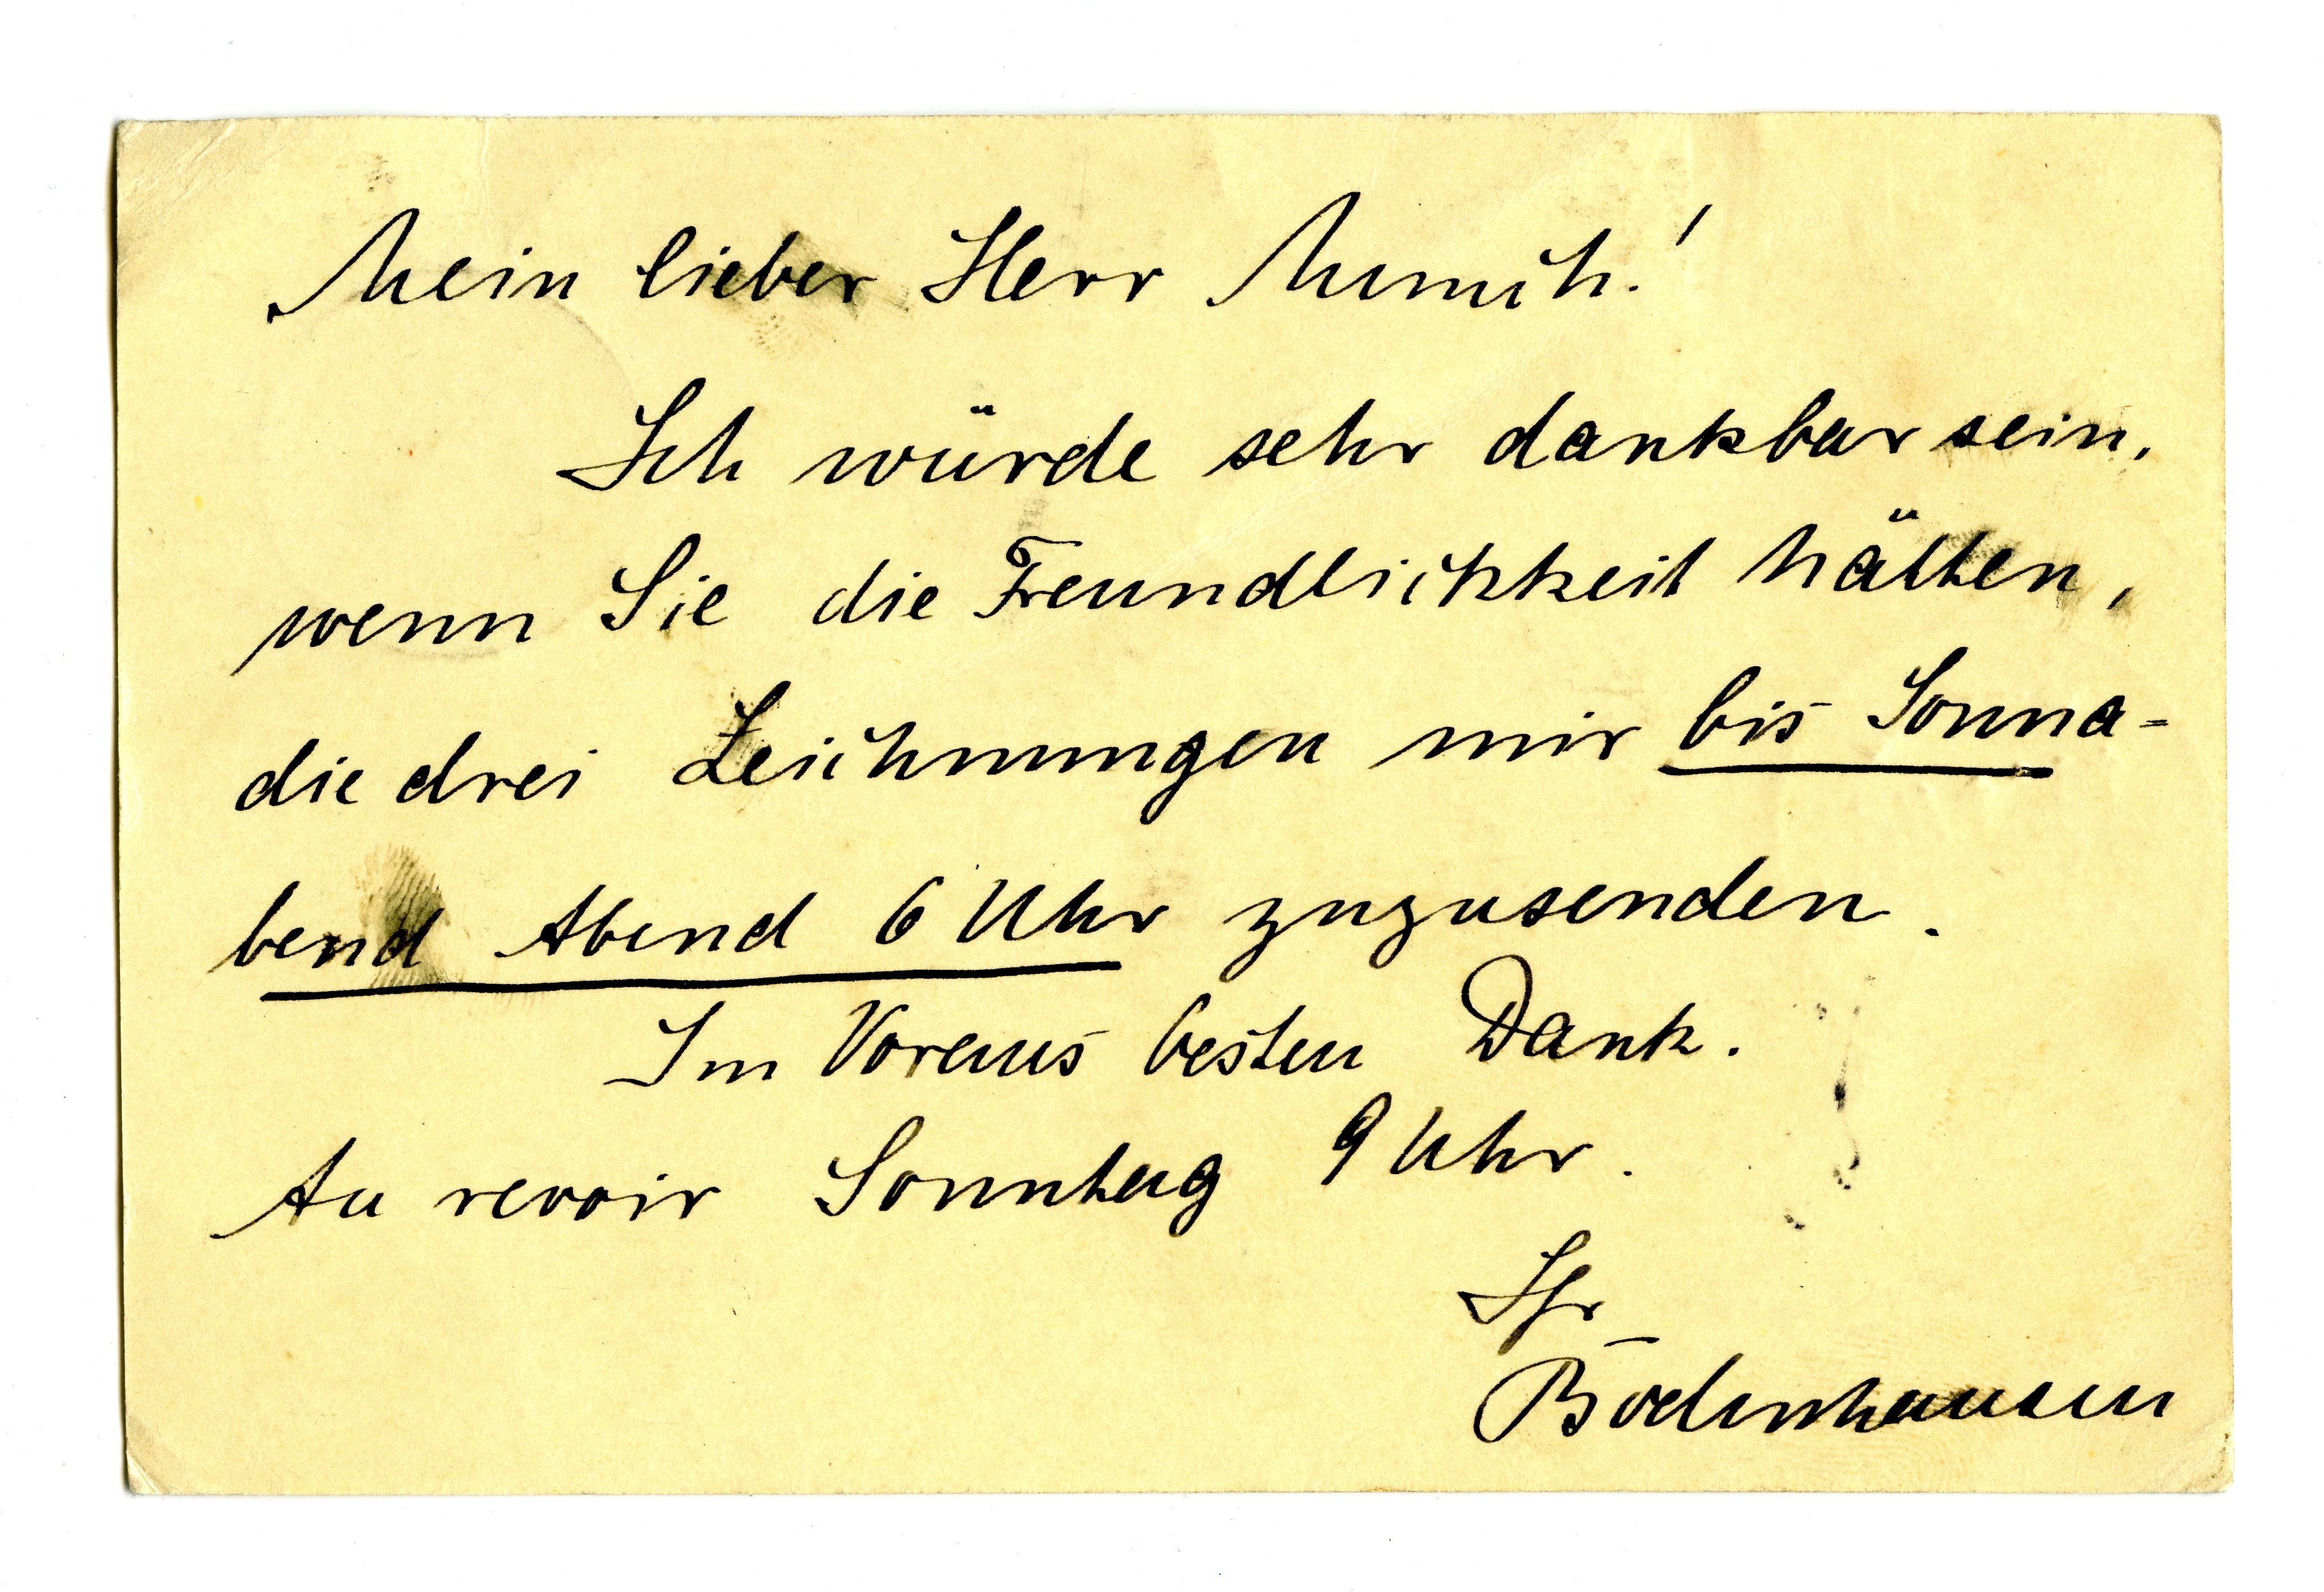 Mein lieber Herr Munch!
Ich würde sehr dankbar sein,
wenn Sie die Freundlichkeit hätten,
die drei Zeichnungen mir bis Sonna-
bend Abend 6 Uhr zuzusenden.
Im Voraus besten Dank.
Au revoir Sonntag 9 Uhr.
Ihr
Bodenhausen